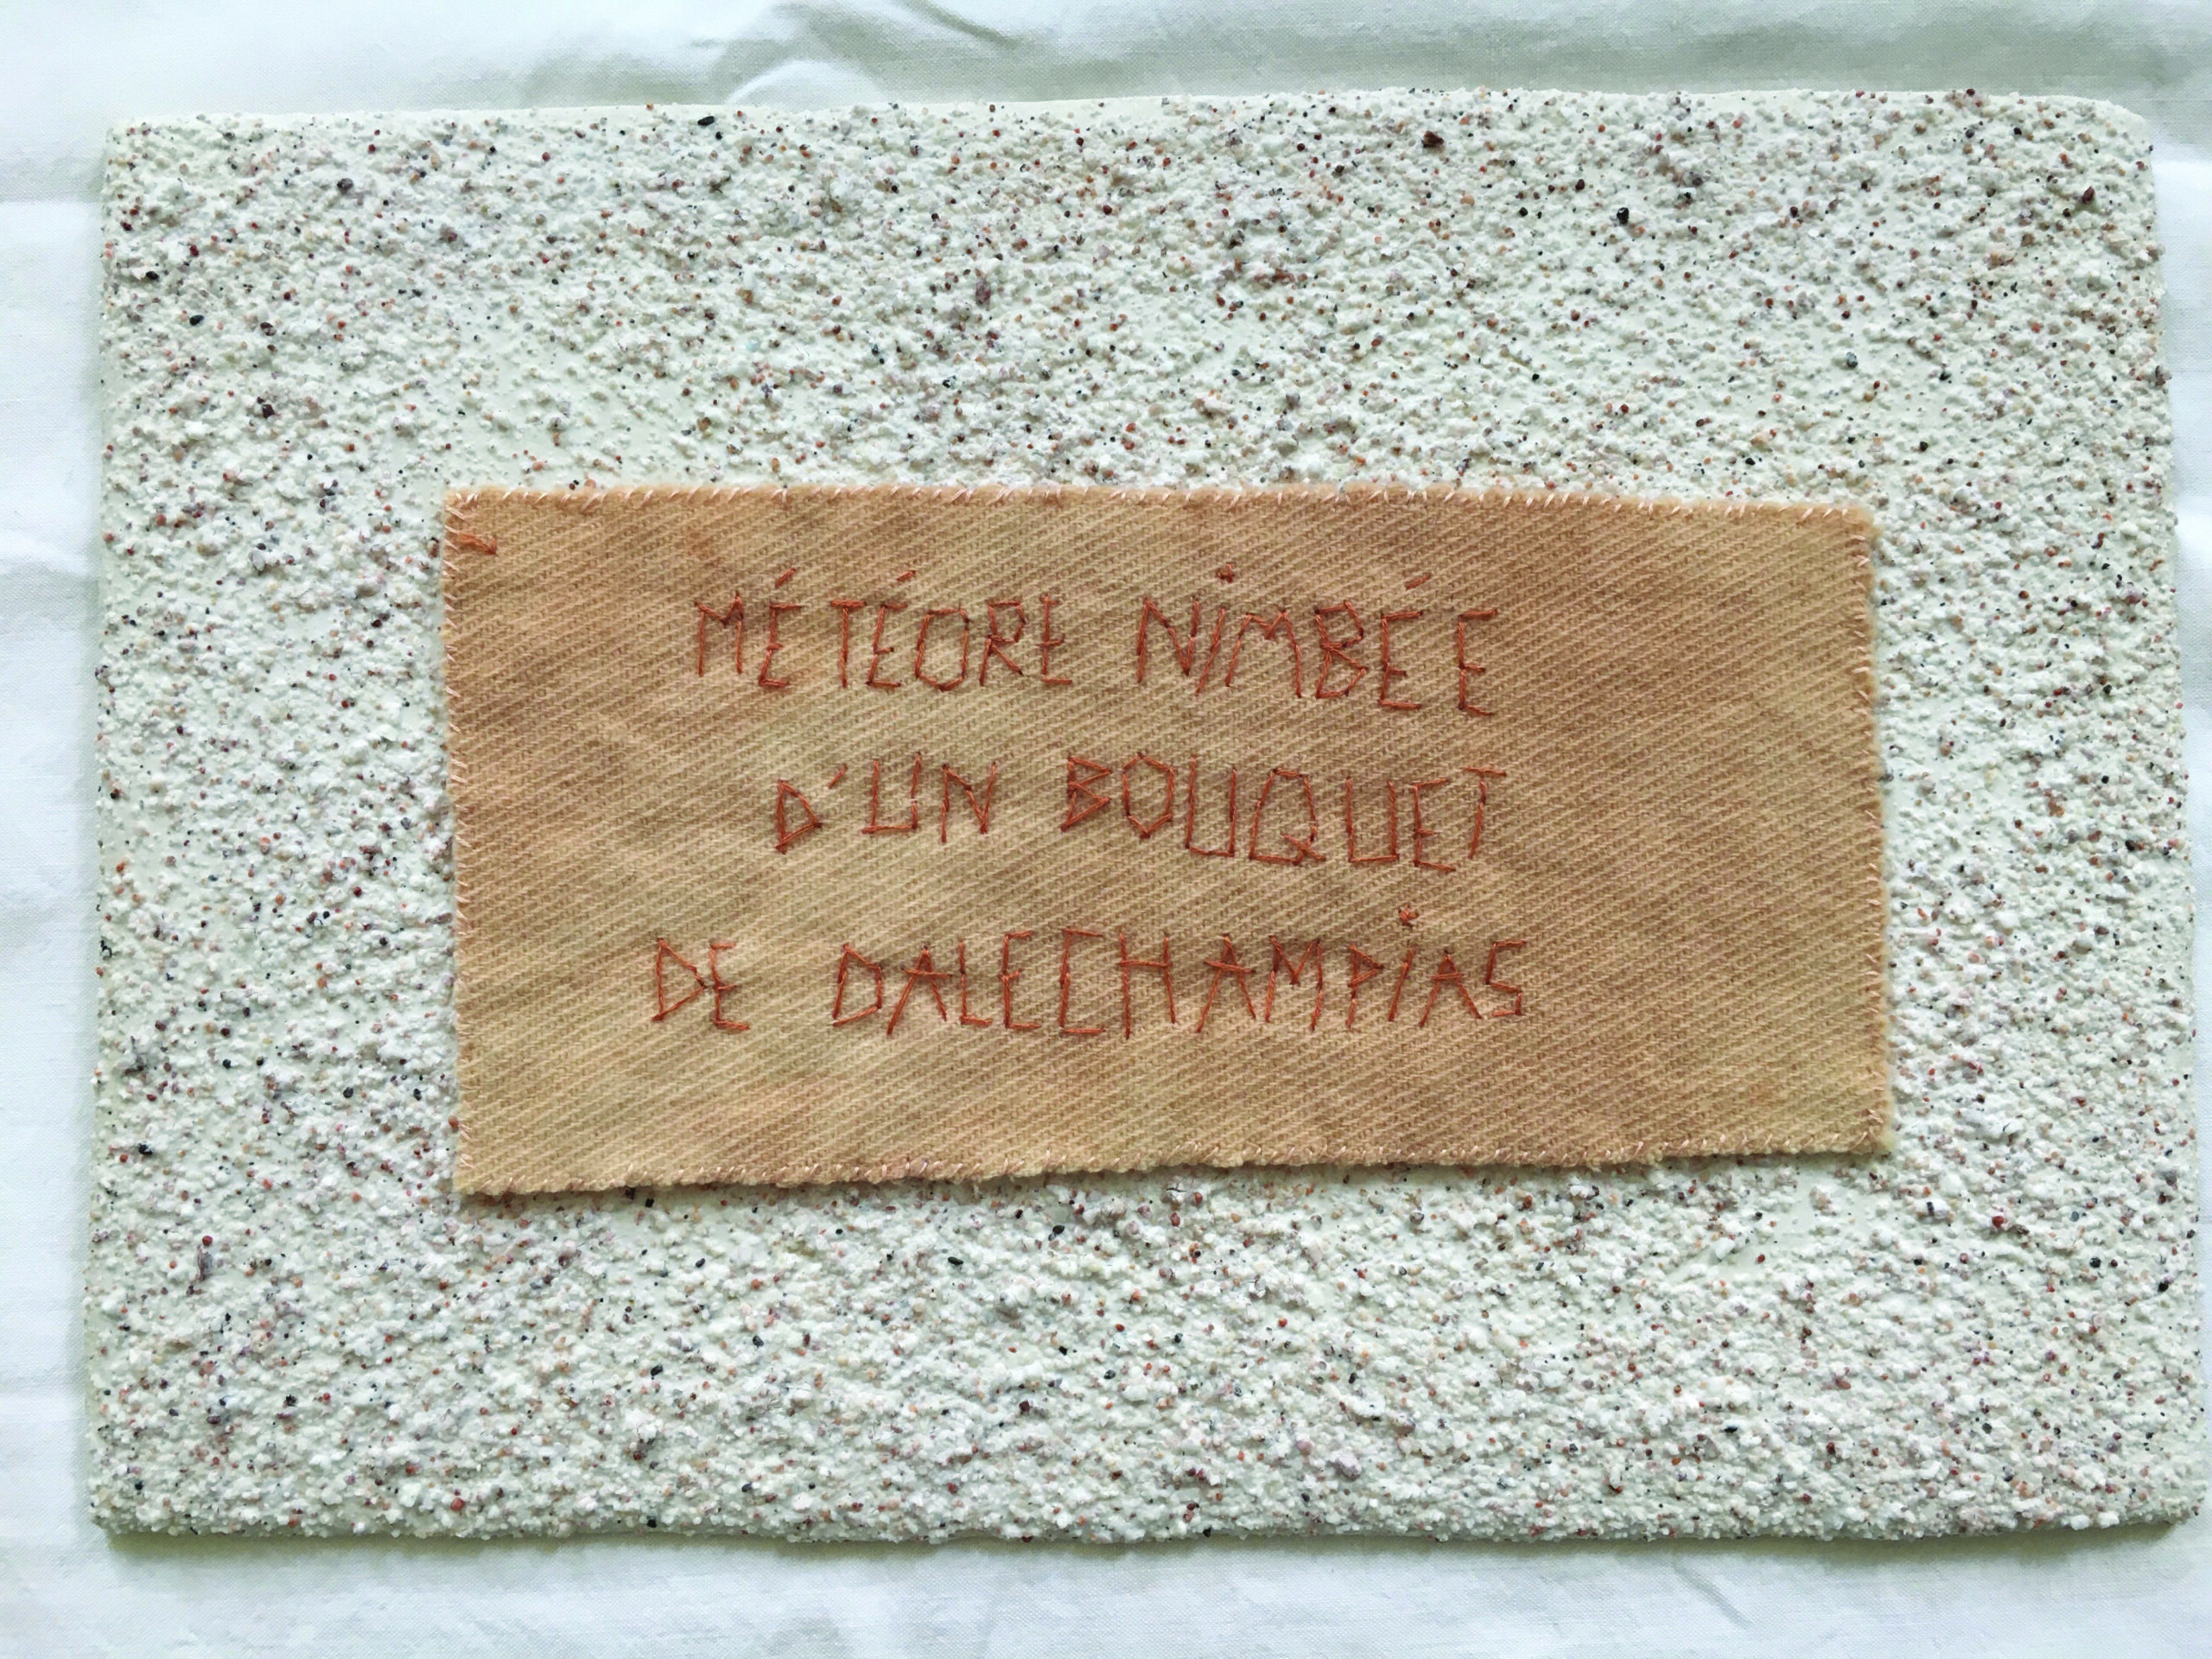 MÉTÉORE NiMBÉE
D'UN BOUQUET
DE DALECHAMPiAS